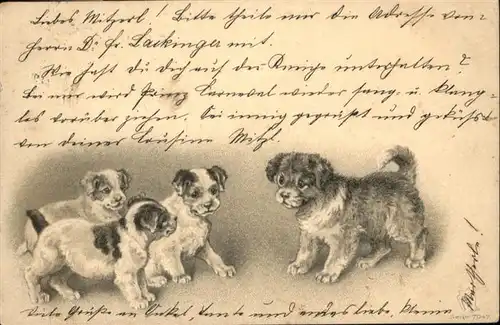 Liebes Mitzerl! Bitte theile mir die Adresse von
Herrn Dr. Fr. Lackinger mit.
Wie hast Du dich auf der Kneipe unterhalten?
Bei mir wird Prinz Carneval wieder sang- u. klang-
los vorüber ziehen. Sei innig gegrüßt und geküßt
von deiner Cousine Mitzl.
Viele Grüße an Onkel, Tante und
liebe Kleine